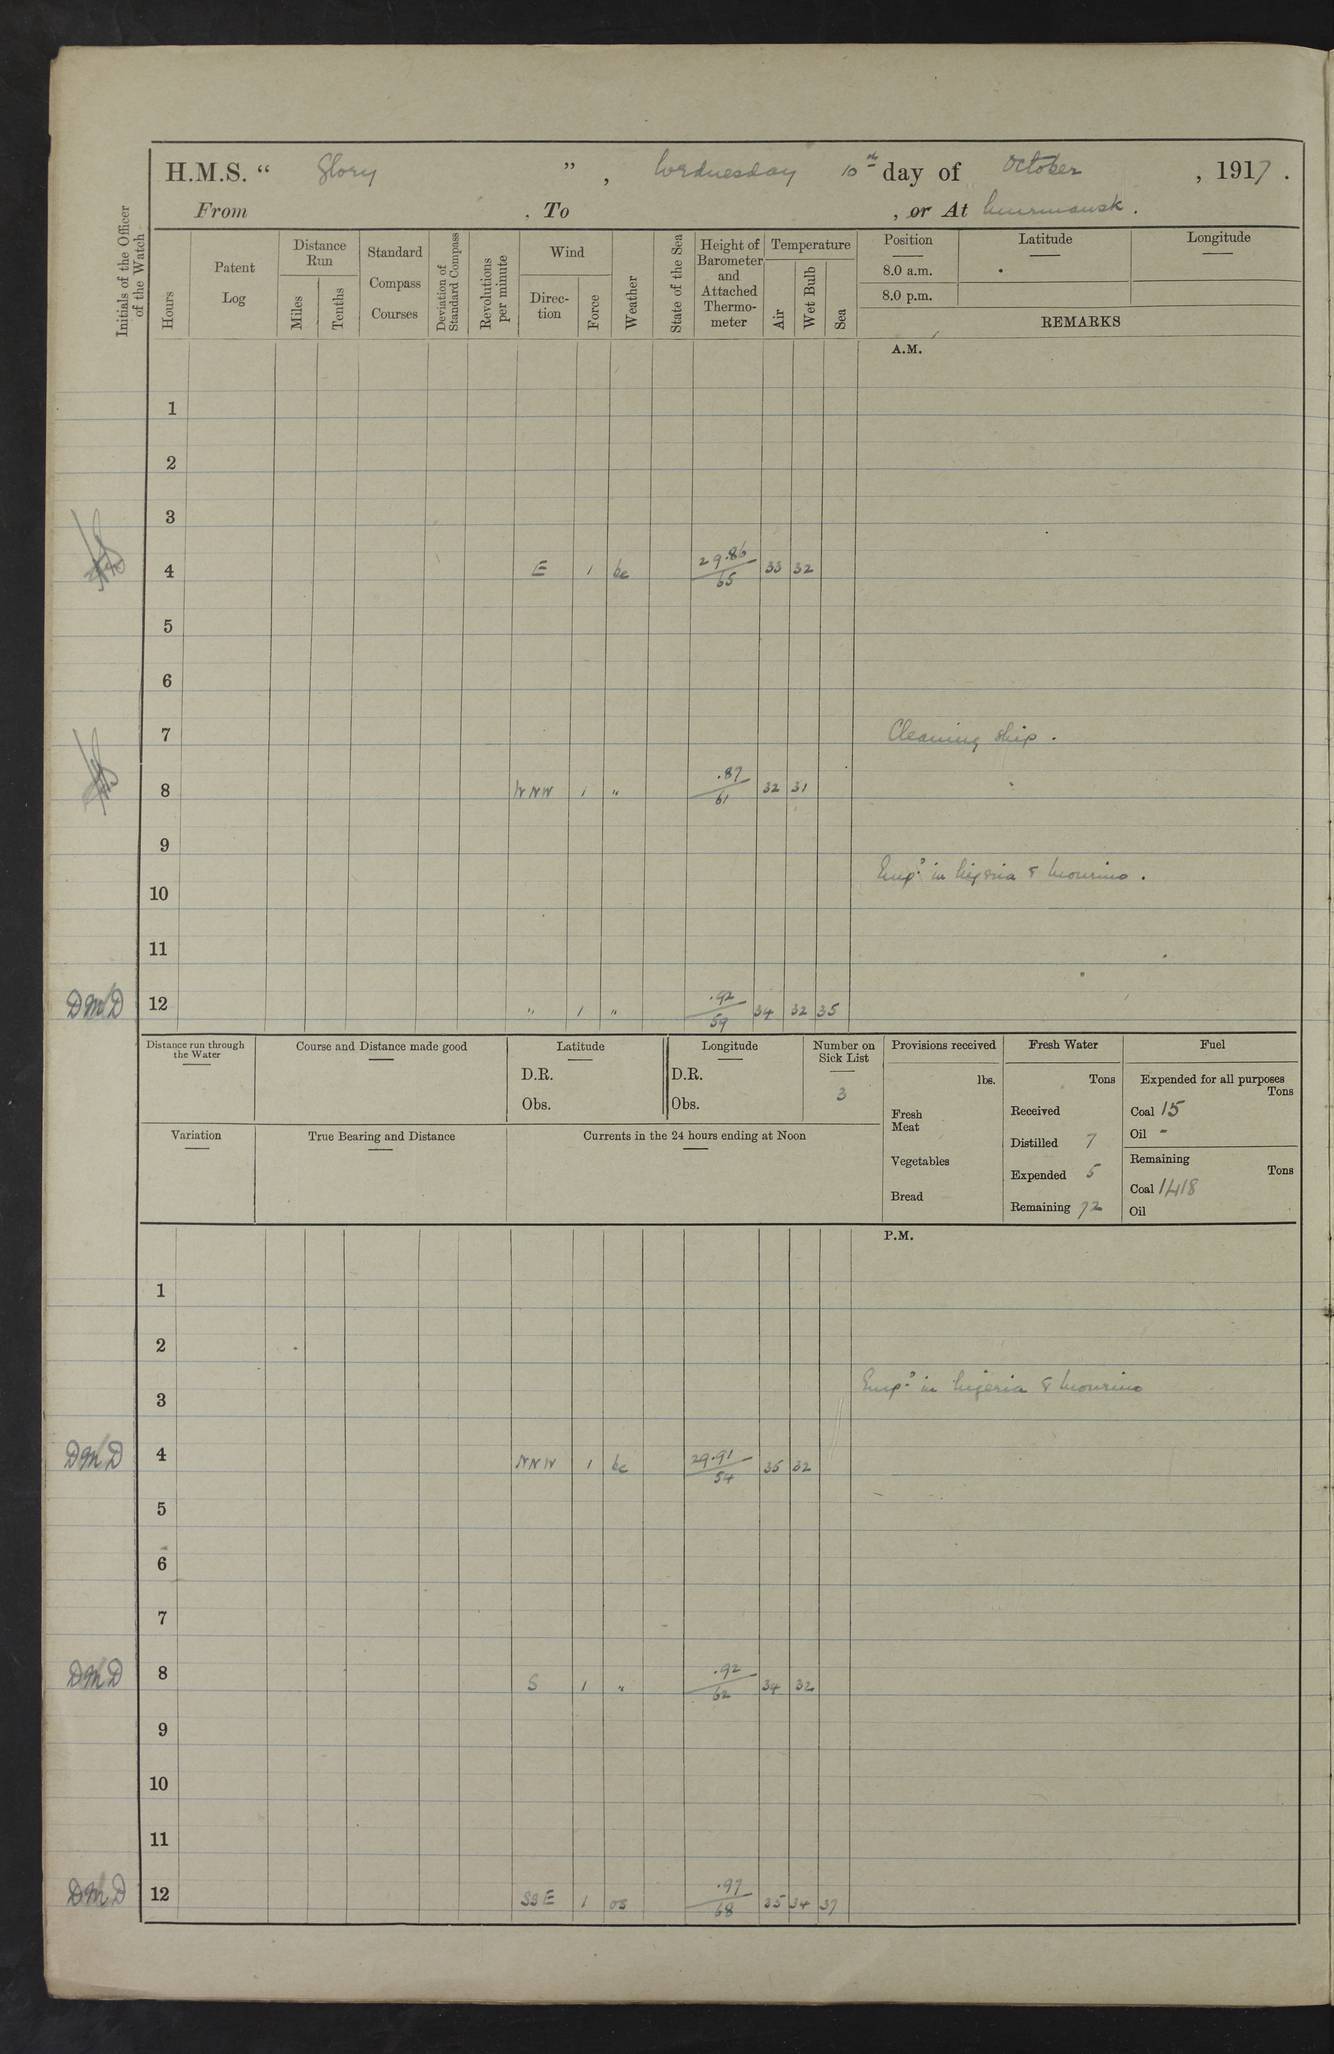 H.M.S. “ Glory ” , Wednesday 10th day of October , 1917 .
From , To , or At Murmansk .
Initials of the Officer of the Watch
Hours
Patent Log
Distance Run
Miles
Tenths
Standard Compass Courses
Deviation of Standard Compass
Revolutions per minute
Wind
Direc-tion
Force
Weather
State of the Sea
Height of Barometer and Attached Thermo-meter
Temperature
Air
Wet Bulb
Sea
Position
Latitude
Longitude
8.0 a.m.
8.0 p.m.
REMARKS
A.M.
1
2
3
4 E 1 bc 29.86/65 33 32
5
6
7 Cleaning ship .
8 WNW 1 " .87/61 32 31
9
Emp.d in &
10
11
DMD 12 " 1 " .92/59 34 32 35
Distance run through the Water
Course and Distance made good
Latitude
D.R.
Obs.
Longitude
D.R.
Obs.
Number on Sick List
3
Provisions received
lbs.
Fresh Meat
Vegetables
Bread
Fresh Water
Tons
Received
Distilled 7
Expended 5
Remaining 72
Fuel
Expended for all purposes
Tons
Coal 15
Oil -
Remaining
Tons
Coal 1418
Oil
Variation
True Bearing and Distance
Currents in the 24 hours ending at Noon
P.M.
1
2
Emp.d in &
3
DMD 4 NNW 1 bc 29.91/54 35 32
5
6
7
DMD 8 S 1 " .92/62 34 32
9
10
11
DMD 12 SSE 1 os .97/68 35 34 37